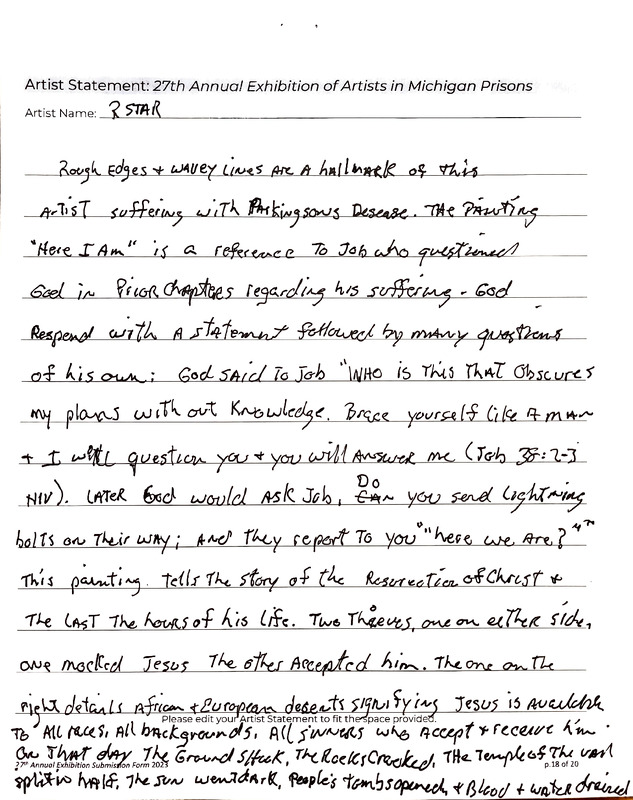 Artist Statement: 27th Annual Exhibition of Artists in Michigan Prisons
Artist Name: R STAR
Rough Edges + wavey lines are a hallmark of this
Artist suffering with Parkingsons Desease. The Painting
"Here I Am" is a reference To Job who questioned
God in Prior Chapters regarding his suffering - God
Respend with a statement followed by many questions
of his own: God said To Job "WHO is This That Obscures
my plans with out Knowledge. Brace yourself like A man
+ I will question you + you will Answer me (Job 38:2-3
NIV). Later God would Ask Job, Do you send lightning
bolts on Their way; And they report To you "here we Are?"
This painting. Tells The story of the Resurection of Christ +
The Last The hours of his life. Two Thieves, one on either side,
one mocked Jesus The other Accepted him. The one on The
right details African + European desents signifying Jesus is available
Please edit your Artist Statement to fit the space provided.
To All races, All backgrounds, All sinners who Accept + receive him.
On That day The Ground Shuck, The Rocks Cracked, The Temple of The vail
27th Annual Exhibition Submission Form 2023 p.18 of 20
split in half, The sun went dark, People's tombs opened, + Blood + water drained